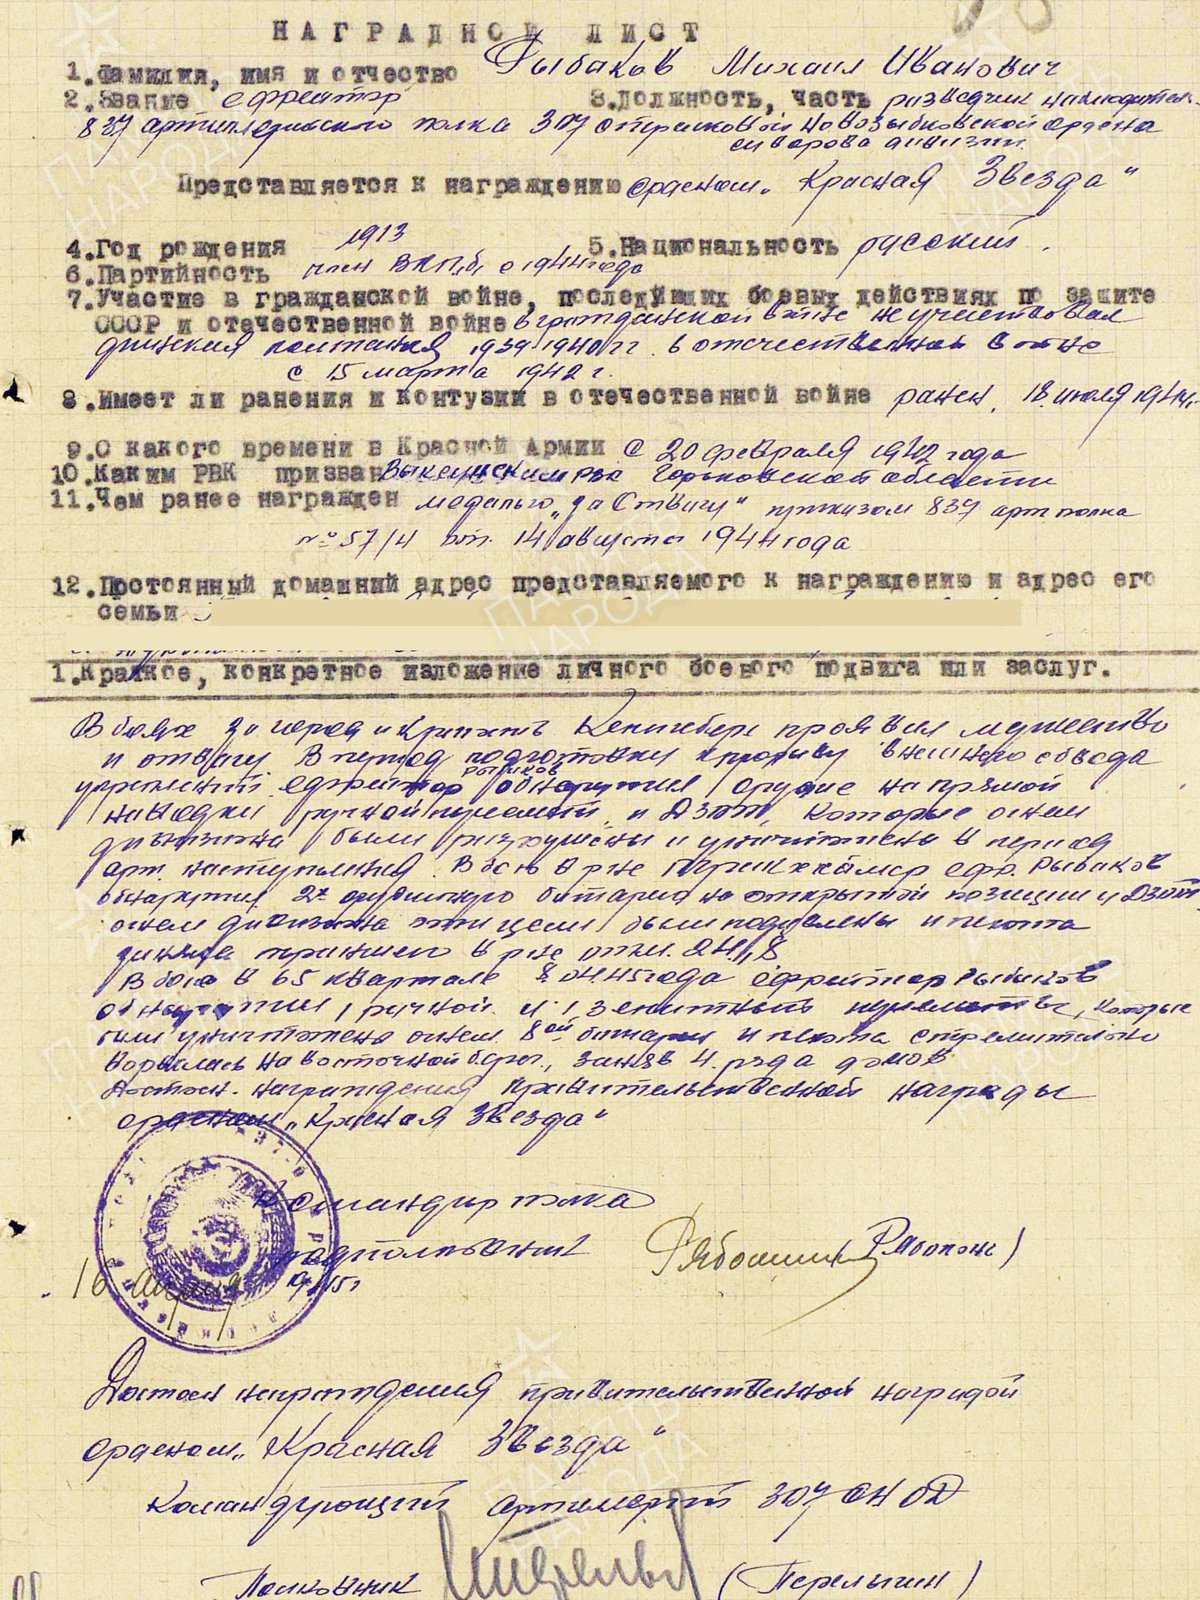 НАГРАДНОЙ ЛИСТ
1. Фамилия, имя и отчество Рыбаков Михаил Иванович
2. Звание ефрейтор 3. Должность, часть разведчик наблюдатель
837 артиллерийского полка 307 стрелковой Новозыбковской ордена
Суворова дивизии.
Представляется к награждению орденом „Красная Звезда"
4. Год рождения 1913 5. Национальность русский.
6. Партийность член ВКП(б) с 1944 года
7. Участие в гражданской войне, последующих боевых действиях по защите
СССР и отечественной войне в гражданской войне не участвовал
финская кампания 1939-1940 гг. в отечественной войне
с 15 марта 1942 г.
8. Имеет ли ранения и контузии в отечественной войне ранен 18 июля 1944 г.
9. С какого времени в Красной Армии с 20 февраля 1942 года
10. Каким РВК призван Выксунским РВК Горьковской области
11. Чем ранее награжден медалью „За Отвагу" приказом 837 арт полка
№ 57/н от 14 августа 1944 года
12. Постоянный домашний адрес представляемого к награждению и адрес его
семьи
1. Краткое, конкретное изложение личного боевого подвига или заслуг.
В боях за город и крепость Кенигсберг проявил мужество
и отвагу. В период подготовки к прорыву внешнего обвода
укреплений ефрейтор Рыбаков обнаружил орудие на прямой
наводке ручной пулемет, и ДЗОТ, которые огнем
дивизиона были разрушены и уничтожены в период
арт. наступления. В бою в р-не еф. Рыбаков
обнаружил 2х орудийную батарею на открытой позиции и ДЗОТ
огнем дивизиона эти цели были подавлены и пехота
в р-не отм. 24,8
В бою в 65 квартале 8.04.45 года ефрейтор Рыбаков
обнаружил 1 ручной и 1 зенитный пулеметы, которые
были уничтожены огнем 8ой батареи и пехота стремительно
ворвалась на восточной заняв 4 ряда домов
Достоин награждения правительственной награды
орденом „Красная Звезда"
Командир полка
подполковник Рябошин
16 апреля 1945 г
Достоин награждения правительственной наградой
орденом „Красная Звезда"
Командующий артиллерией 307 СНОД
Полковник (Перелыгин)
ПАМЯТЬ НАРОДА